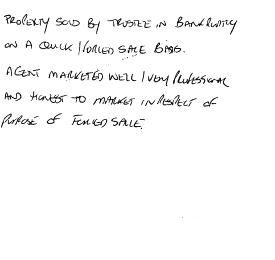 PROPERTY SOLD BY TRUSTEE IN BANKRUPTCY
ON A QUICK / FORCED SALE BASIS.
AGENT MARKETED WELL / VERY PROFESSIONAL
AND HONEST TO MARKET IN RESPECT OF
PURPOSE OF FORCED SALE.